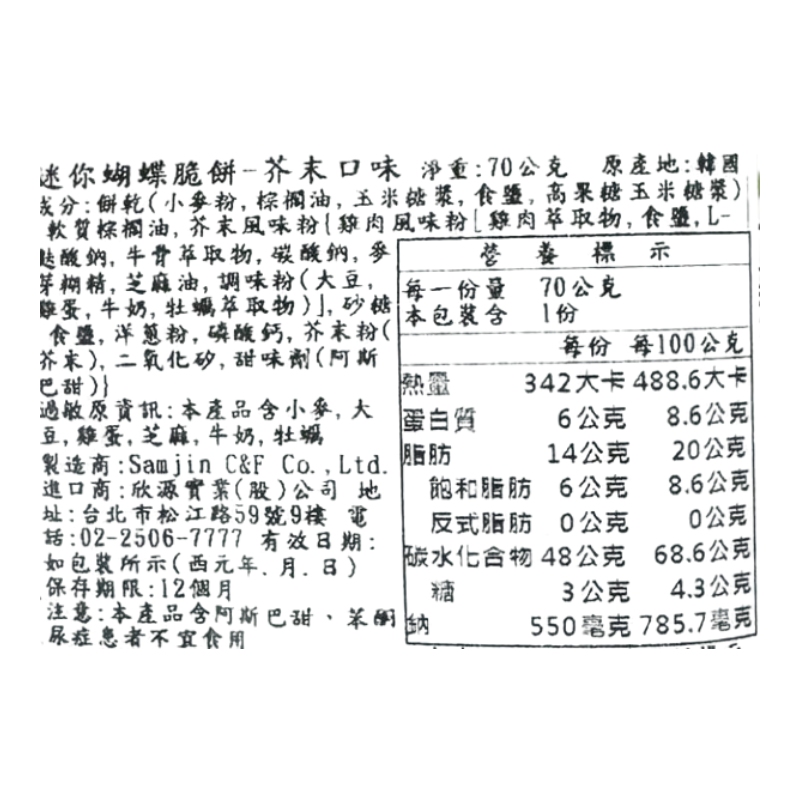 迷你蝴蝶脆餅-芥末口味 淨重:70公克 原產地:韓國
成分:餅乾(小麥粉,棕櫚油,玉米糖漿,食鹽,高果糖玉米糖漿)
軟質棕櫚油,芥末風味粉{雞肉風味粉[雞肉萃取物,食鹽,L-
麩酸鈉,牛骨萃取物,碳酸鈉,麥
芽糊精,芝麻油,調味粉(大豆,
雞蛋,牛奶,牡蠣萃取物)],砂糖
食鹽,洋蔥粉,磷酸鈣,芥末粉(
芥末),二氧化矽,甜味劑(阿斯
巴甜)}
過敏原資訊:本產品含小麥,大
豆,雞蛋,芝麻,牛奶,牡蠣
製造商:Samjin C&F Co.,Ltd.
進口商:欣源實業(股)公司 地
址:台北市松江路59號9樓 電
話:02-2506-7777 有效日期:
如包裝所示(西元年.月.日)
保存期限:12個月
注意:本產品含阿斯巴甜、苯酮
尿症患者不宜食用
營養標示
每一份量 70公克
本包裝含 1份
每份 每100公克
熱量 342大卡 488.6大卡
蛋白質 6公克 8.6公克
脂肪 14公克 20公克
飽和脂肪 6公克 8.6公克
反式脂肪 0公克 0公克
碳水化合物 48公克 68.6公克
糖 3公克 4.3公克
鈉 550毫克 785.7毫克